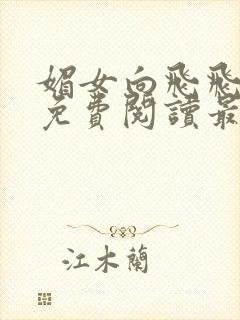 媚女向飛飛
免費閱讀最
江木蘭